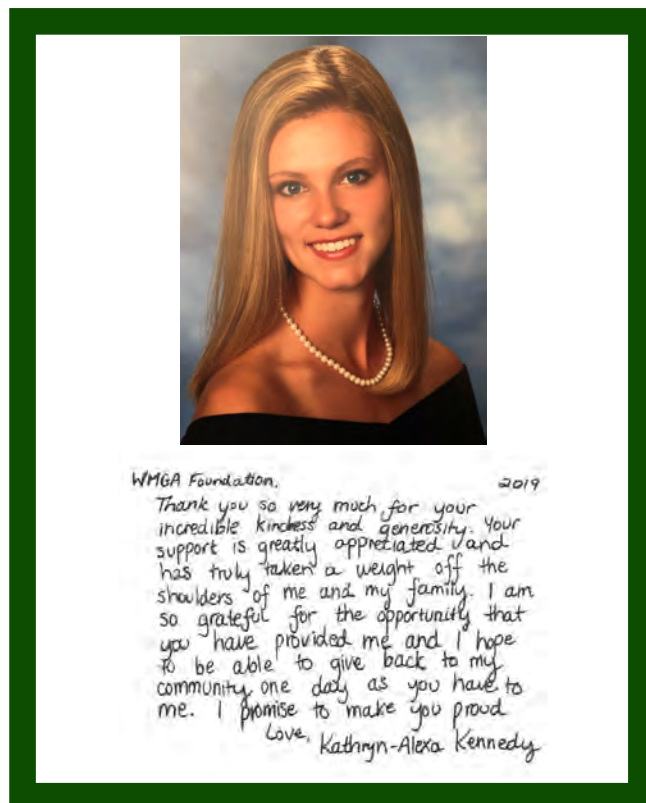 WMGA Foundation, 2019
Thank you so very much for your
incredible kindness and generosity. Your
support is greatly appretiated and
has truly taken a weight off the
shoulders of me and my family. I am
so grateful for the opportunity that
you have provided me and I hope
to be able to give back to my
community one day as you have to
me. I promise to make you proud
Love,
Kathryn-Alexa Kennedy